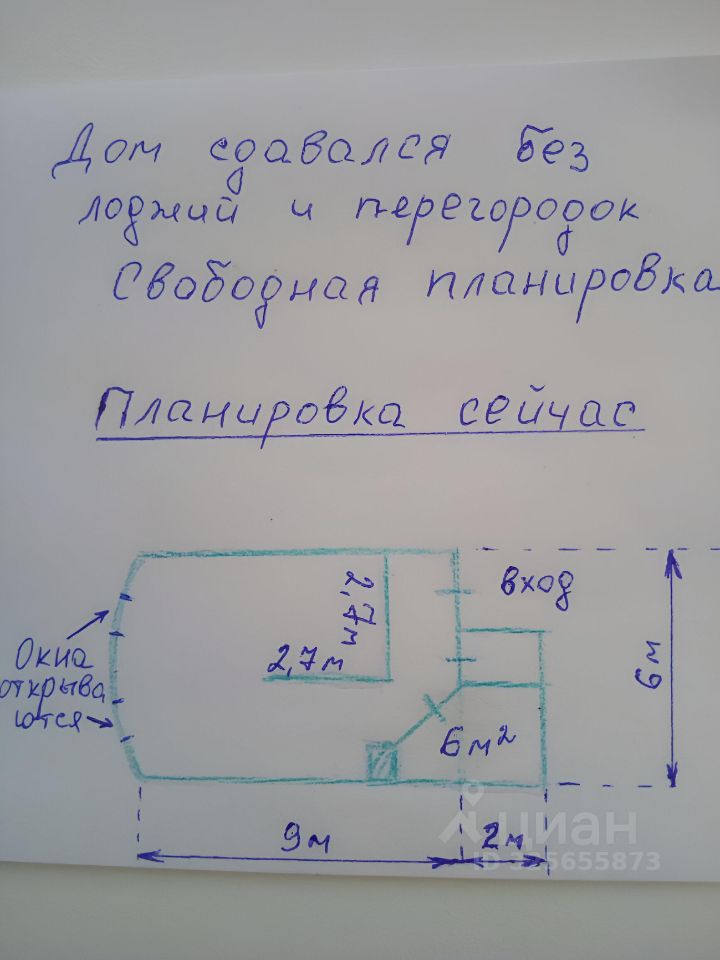 Дом сдавался без
лоджий и перегородок
Свободная планировка
Планировка сейчас
вход
2,7м
2,7м
Окна
открыва
ются
6м²
6м
9м
2м
циан
ID 325655873